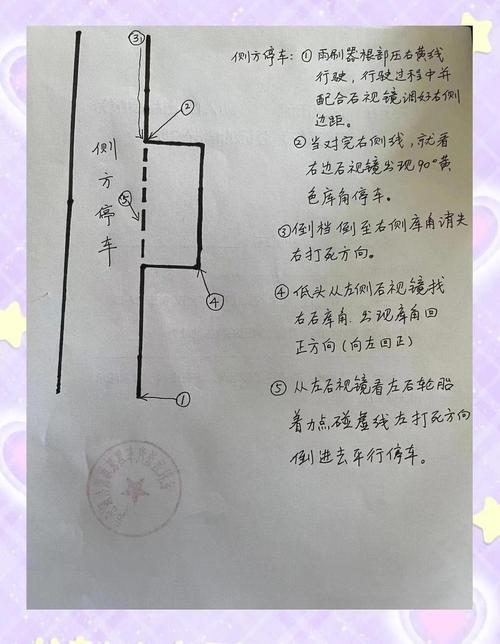 侧方停车:① 雨刷器根部压右黄线
行驶,行驶过程中并
配合后视镜调好右侧
边距。
② 当对完右侧线,就看
右边后视镜发现90°黄
色库角停车。
③ 倒档倒至右侧库角消失
右打死方向。
④ 低头从左侧后视镜找
右后库角.发现库角回
正方向(向左回正)
⑤ 从左后视镜看左后轮胎
着力点碰虚线左打死方向
倒进去平行停车。
③
②
侧方停车
⑤
④
①